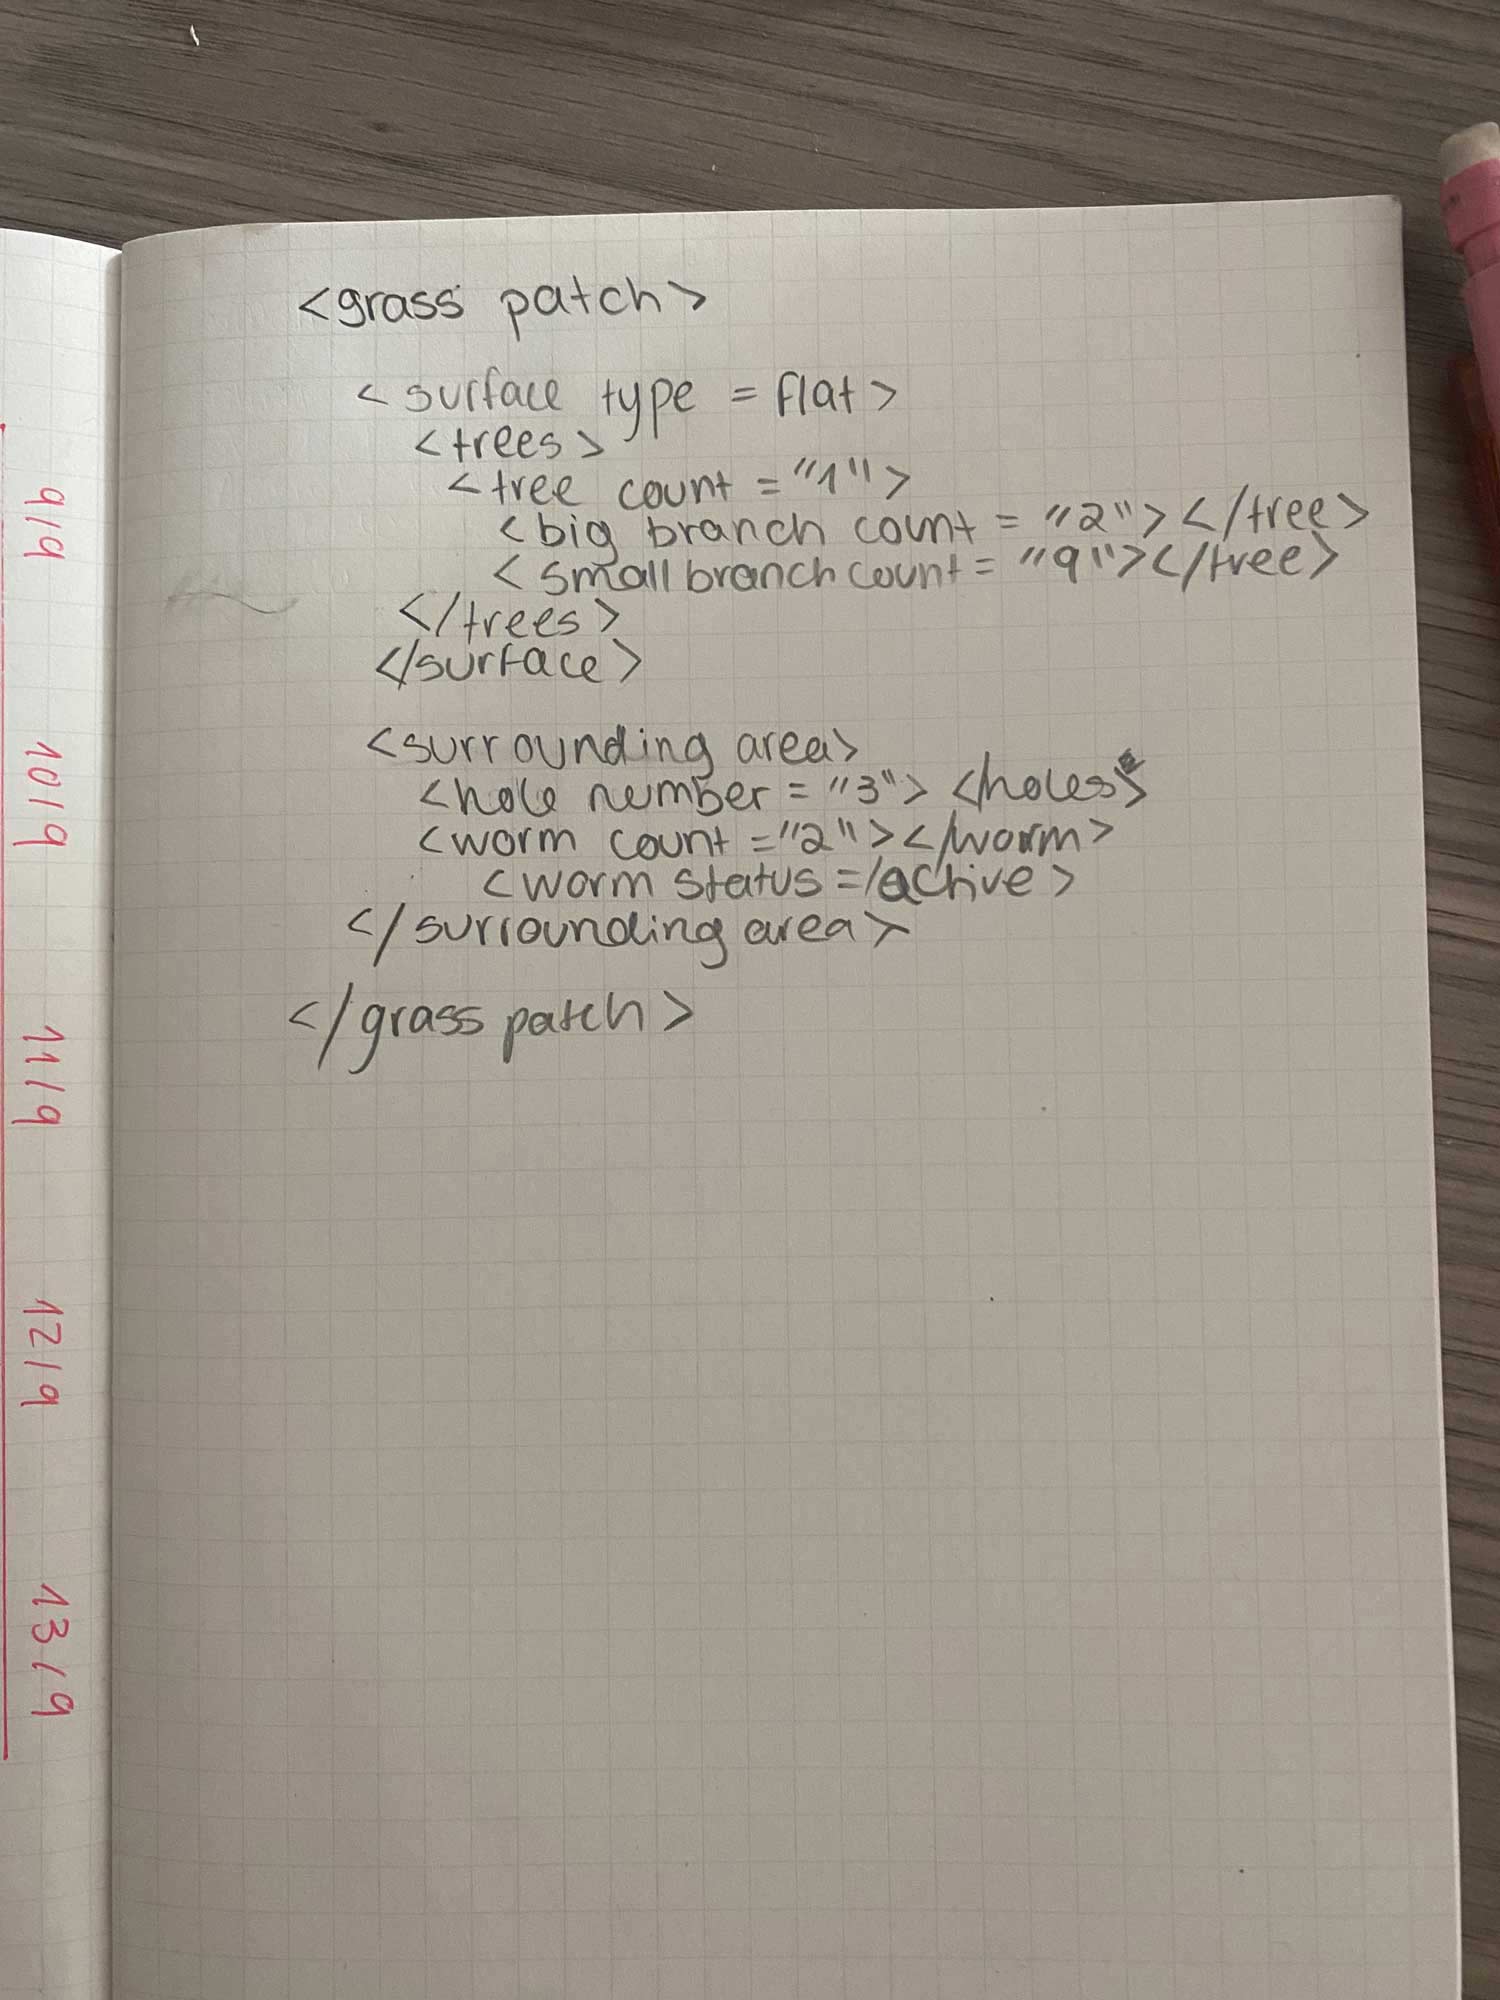 <grass patch>
<surface type = flat>
<trees>
<tree count = "1">
<big branch count = "2"></tree>
<small branch count = "9"></tree>
</trees>
</surface>
<surrounding area>
<hole number = "3"> </holes>
<worm count = "2"></worm>
<worm status = active>
</surrounding area>
</grass patch>
9/9
10/9
11/9
12/9
13/9